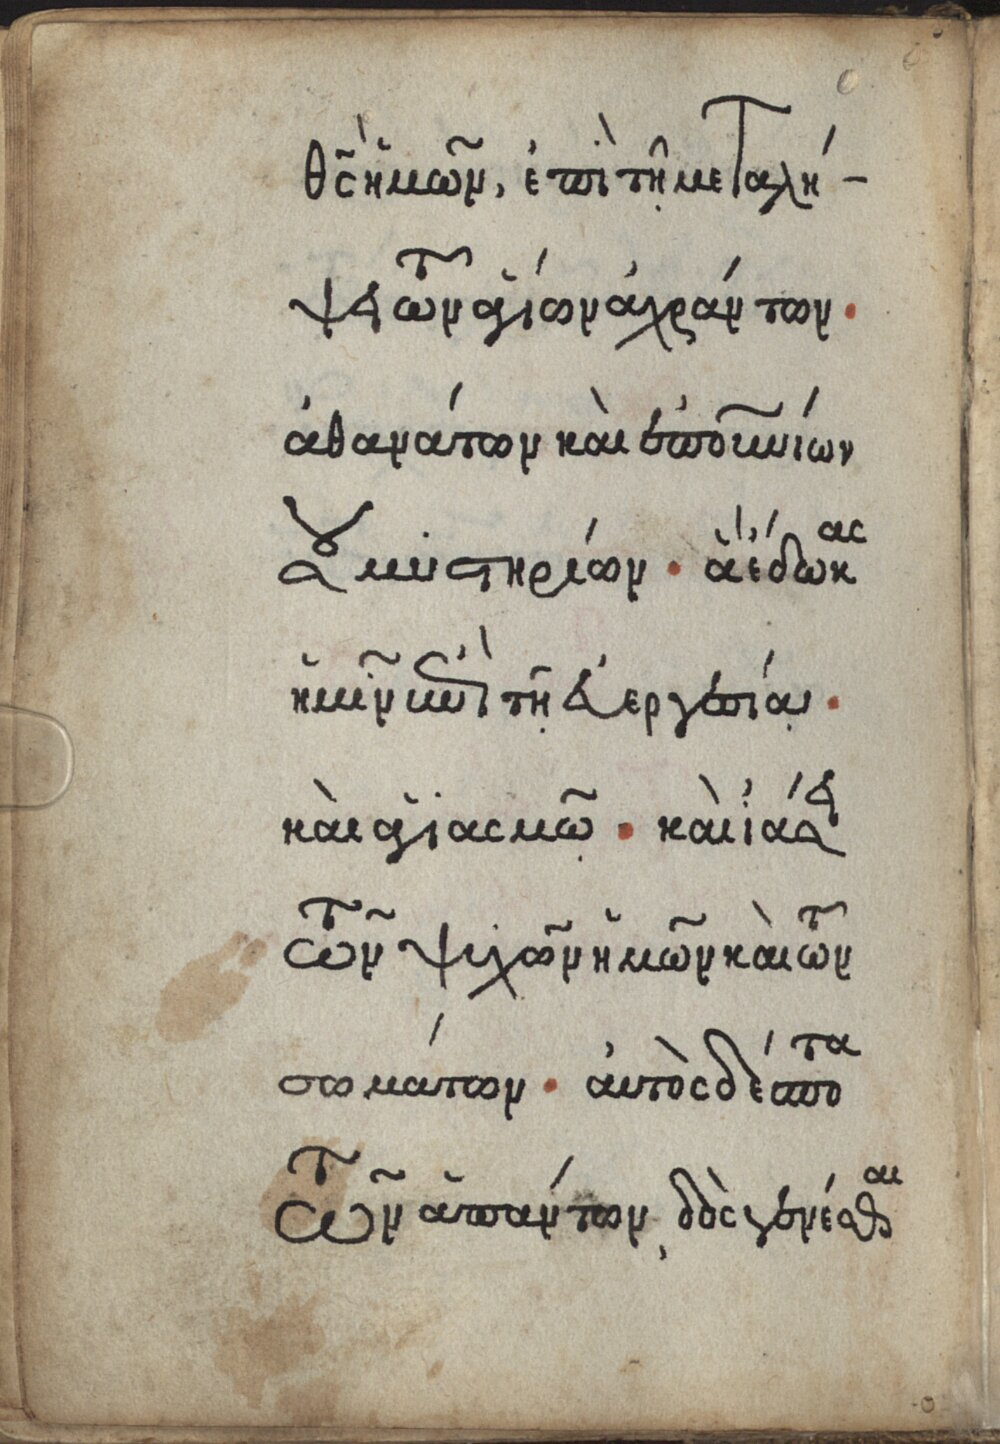 θς̃ ἡμῶν, ἐπὶ τῇ μεταλή-
ψει τῶν ἁγίων ἀχράντων·
ἀθανάτων καὶ ἐπουρανίων
σου μυστηρίων· ἃ ἔδωκας
ἡμῖν ἐπὶ τῇ εὐεργεσίᾳ·
καὶ ἁγιασμῷ· καὶ ἰάσει
τῶν ψυχῶν ἡμῶν καὶ τῶν
σωμάτων· αὐτὸς δέσποτα
τῶν ἁπάντων, δὸς γενέσθαι